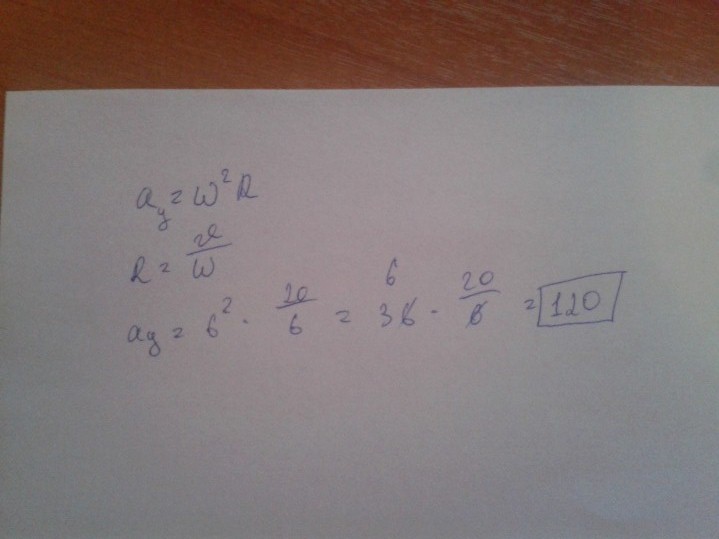 aц = ω² R
R = υ/ω
aц = 6² · 20/6 = 36 · 20/6 = 120
6